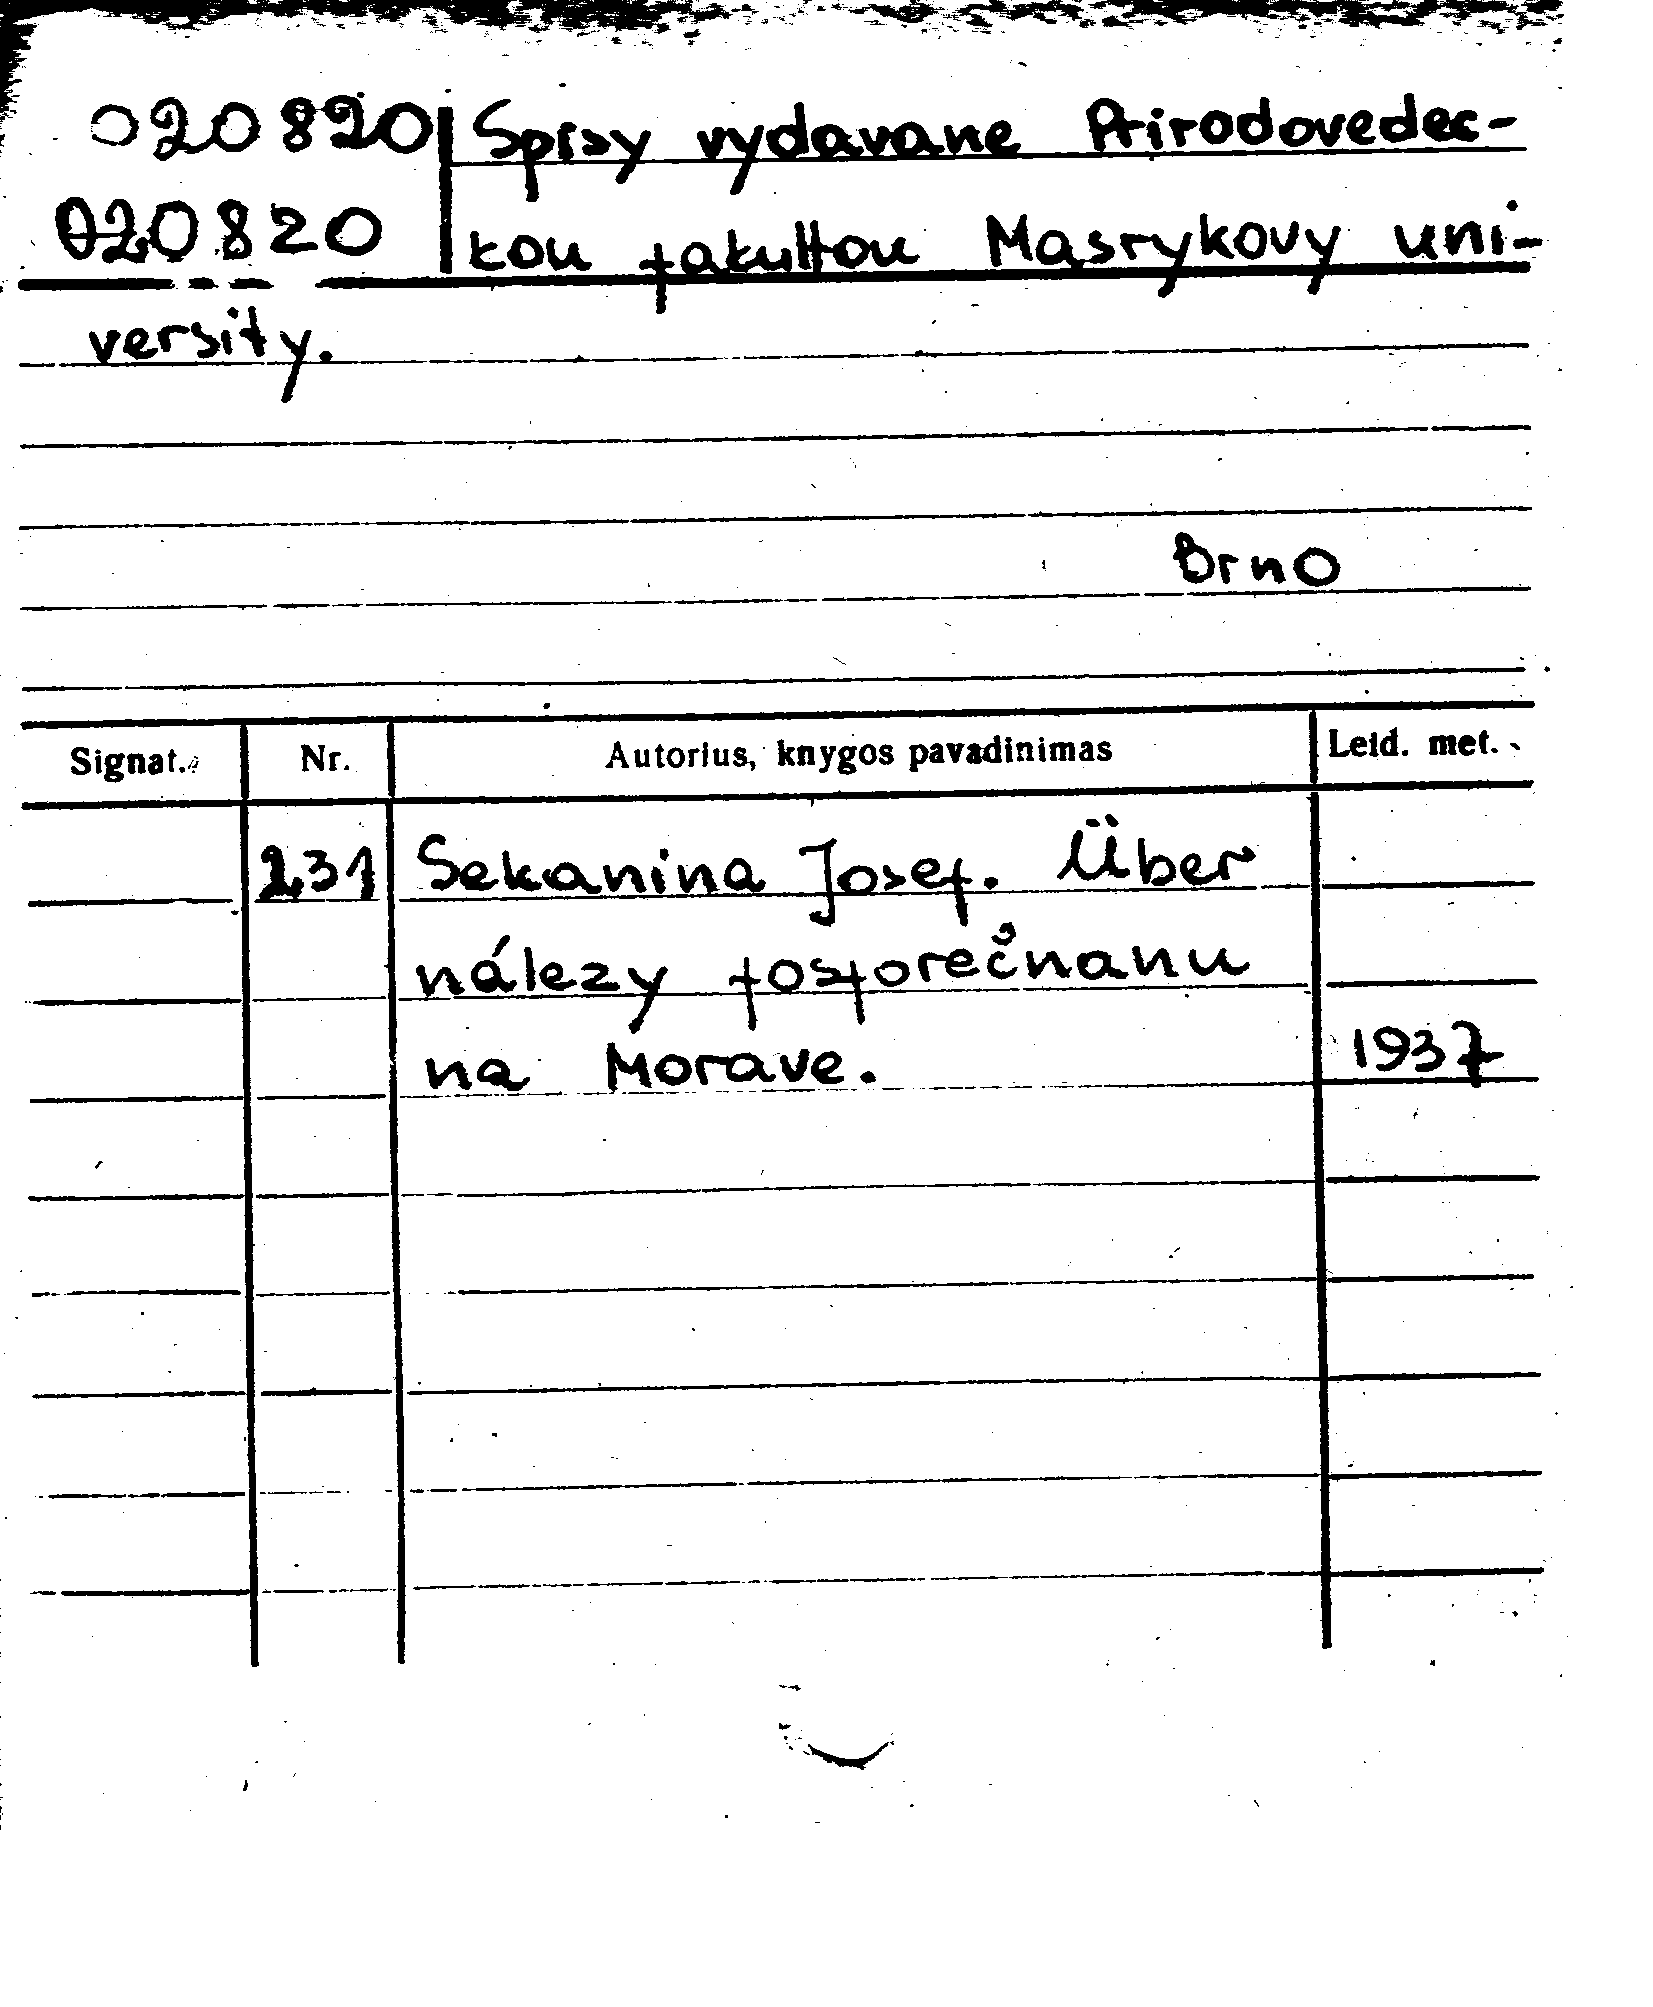 020820 Sprsy vydavane Prirodovedec-
020820 kou fakultou Masrykovy uni-
versity.
Brno
Signat. Nr. Autorius, knygos pavadinimas Leid. met.
231 Sekanina Josef. Über
nálezy fosforečnanu
na Morave. 1937